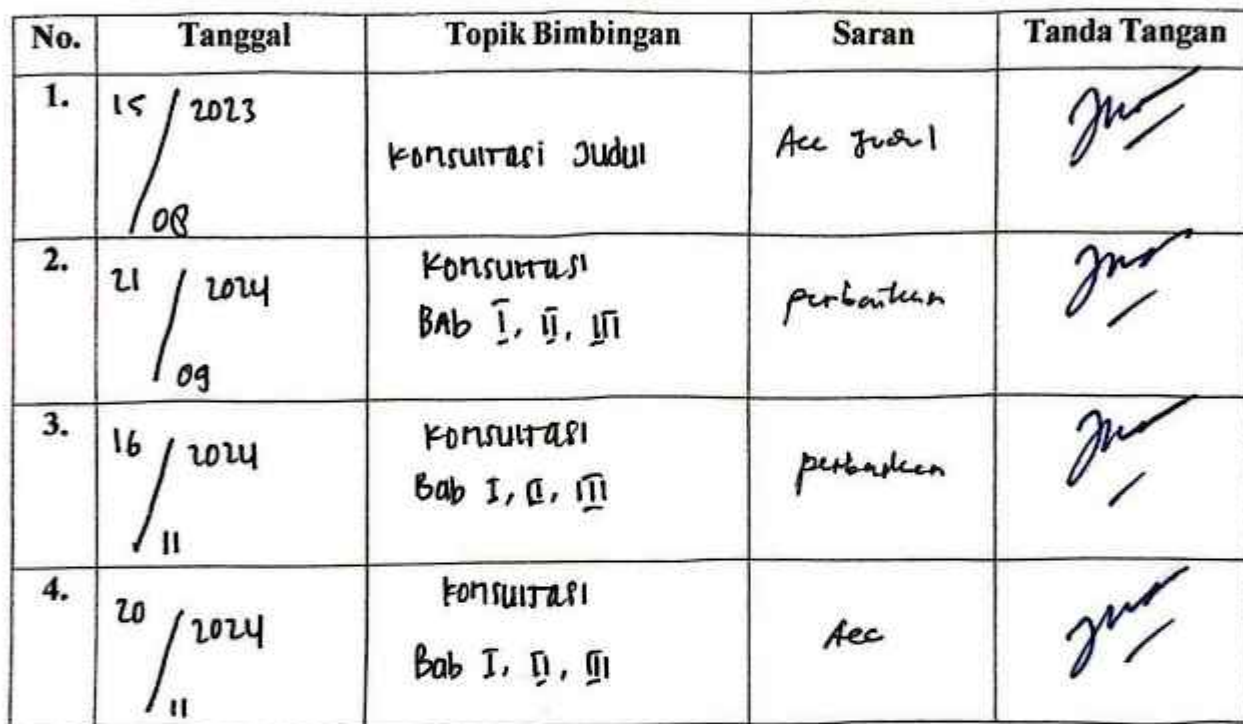 No. Tanggal Topik Bimbingan Saran Tanda Tangan
1. 15/08 2023 Konsultasi Judul Acc Judul
2. 21/09 2024 Konsultasi
BAb I, II, III perbaikan
3. 16/11 2024 Konsultasi
Bab I, II, III perbaikan
4. 20/11 2024 Konsultasi
Bab I, II, III Acc